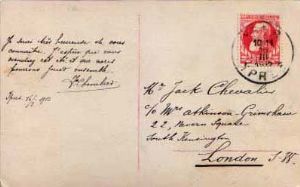 Je suis très heureuse de vous
connaître. J'espère que vous
viendrez cet été et nous
pourrons jouer ensemble.
Mr Jack Chevalier
c/o Mrs Atkinson-Grimshaw
22, Nevern Square
South Kensington
London S.W.